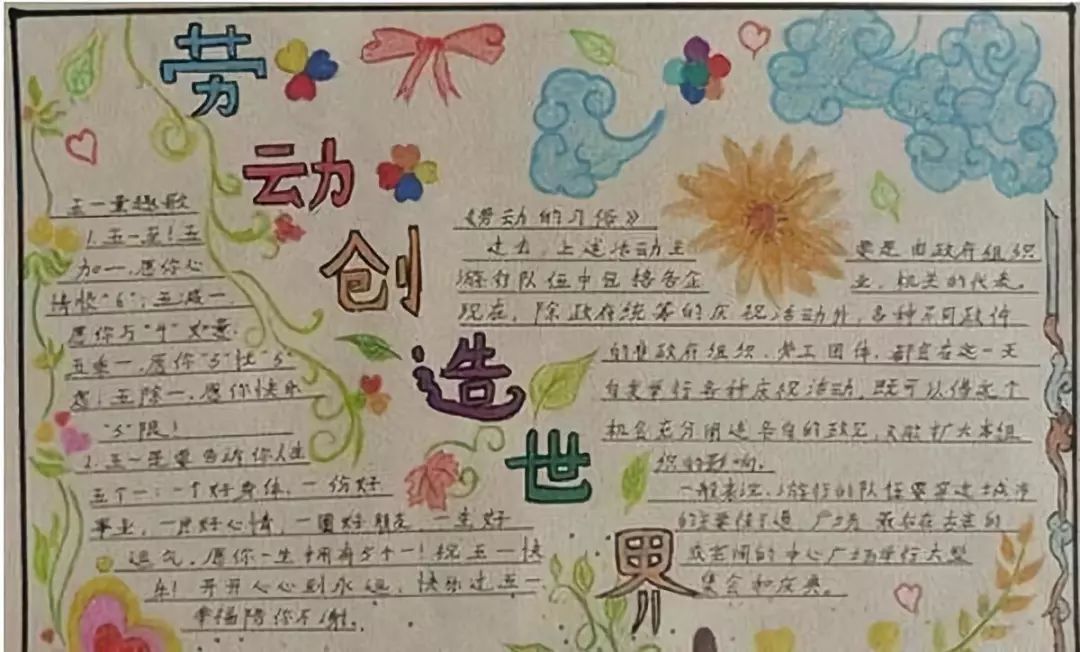 劳动创造世界
五一童趣歌
1.五一至！五
加一,愿你心
情快"6"；五减一,
愿你与"4"
五乘一,愿你"5"快"5"
五除一,愿你快乐
"5"限！
2.五一是要告诉你人生
五个一：一个好身体,一份好
事业,一片好心情,一圈好朋友,一生好
运气,愿你一生拥有5个一！祝五一快
乐！开开心心到永远,快乐过五一
幸福陪你不谢。
《劳动的习俗》
过去,上述活动主要是由政府组织
游行队伍中包括各企业、机关的代表。
现在,除政府统筹的庆祝活动外,各种不同政
的非政府组织、劳工团体,都会在这一天
自发举行各种庆祝活动,既可以借这个
机会充分阐述各自的政见,又能扩大本组
织的影响。
一般来说,游行的队伍要穿过城市
的主要街道、广场,最后在
的中心广场举行大型
集会和庆典。